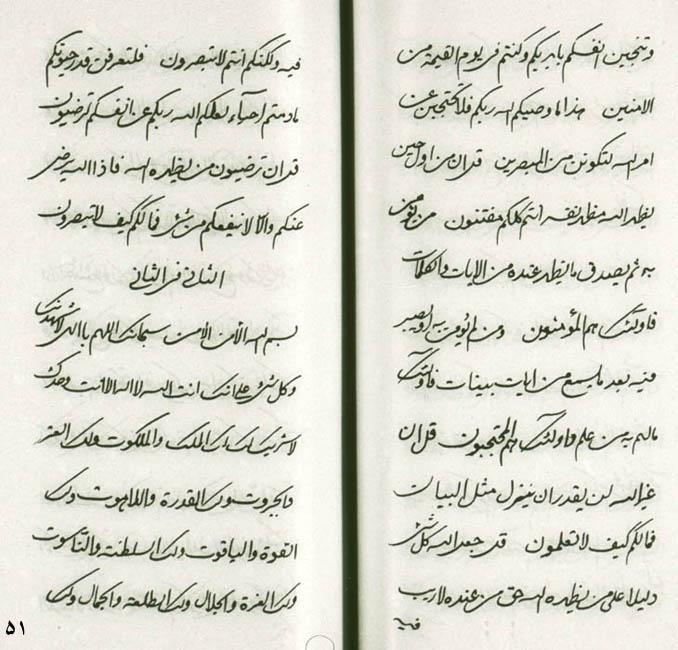 وتنجين انفسكم بامر ربكم وكنتم في يوم القيمة من
الامنين هذا ما وصيكم الله ربكم فلا تحتجبن عن
امر الله لتكونن من المبصرين قل ان من اول حين
يظهر الله مظهر نفسه انتم كلكم مفتنون من يؤمن
به ثم يصدق ما يظهر عنده من الايات والكلمات
فاولئك هم المؤمنون ومن لم يؤمن به او يصبر
فيه بعد ما يسمع من ايات بينات فاولئك
ما لهم به من علم واولئك هم المحتجبون قل ان
غير الله لن يقدر ان ينزل مثل البيان
فما لكم كيف لا تعلمون قد جعل الله كل شئ
دليلا على من يظهره الله حق من عنده لا ريب
فيه
فيه ولكنكم انتم لا تبصرون فلتعرفن قدر حيوتكم
ما دمتم احياء لعلكم الله ربكم عن انفسكم ترضيون
قل ان ترضيون من يظهره الله فاذا الله يرضى
عنكم والا لا ينفعكم من شئ فما لكم كيف لا تبصرون
الثاني في الثاني
بسم الله الأمن الأمن سبحانك اللهم يا الهي لأشهدنك
وكل شئ على انك انت الله لا اله الا انت وحدك
لا شريك لك لك الملك والملكوت ولك العز
والجبروت ولك القدرة واللاهوت ولك
القوة والياقوت ولك السلطنة والناسوت
ولك العزة والجلال ولك الطلعة والجمال ولك
۵۱